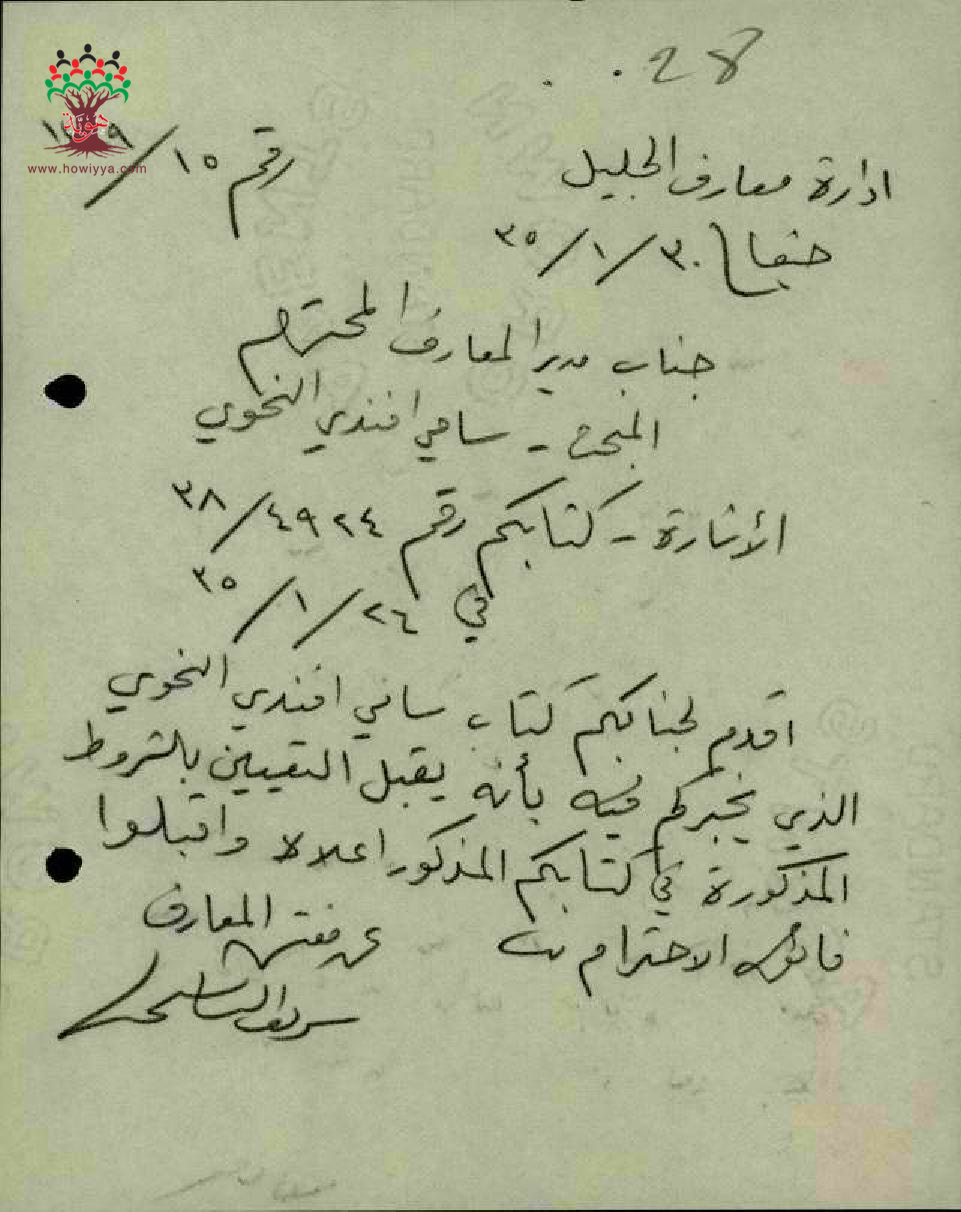 28
ادارة معارف الجليل
رقم ١٥/
حيفا ٣٠/١/٣٥
جناب مدير المعارف المحترم
المبحث - سامي افندي النحوي
الأشارة - كتابكم رقم ٤٩٢٤/٣٨
في ٢٤/١/٣٥
اقدم لجنابكم كتاب سامي افندي النحوي
الذي يخبركم فيه بأنه يقبل التعيين بالشروط
المذكورة في كتابكم المذكور اعلاه واقبلوا
فائق الاحترام
عن مفتش المعارف
هوية
www.howiyya.com